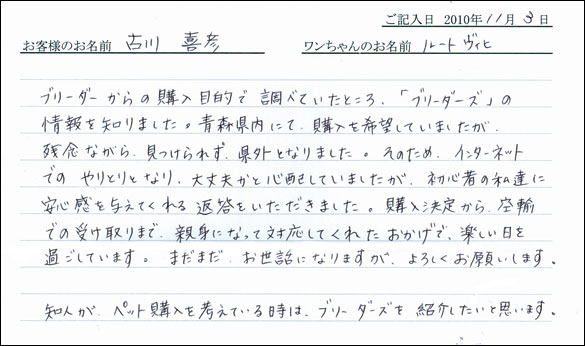 ご記入日 2010年11月3日
お客様のお名前 古川 喜彦 ワンちゃんのお名前 ルートヴィヒ
ブリーダーからの購入目的で調べていたところ、「ブリーダーズ」の
情報を知りました。青森県内にて、購入を希望していましたが、
残念ながら、見つけられず、県外となりました。そのため、インターネット
でのやりとりとなり、大丈夫かと心配していましたが、初心者の私達に
安心感を与えてくれる返答をいただきました。購入決定から、空輸
での受け取りまで、親身になって対応してくれたおかげで、楽しい日を
過ごしています。まだまだ、お世話になりますが、よろしくお願いします。
知人が、ペット購入を考えている時は、ブリーダーズを紹介したいと思います。